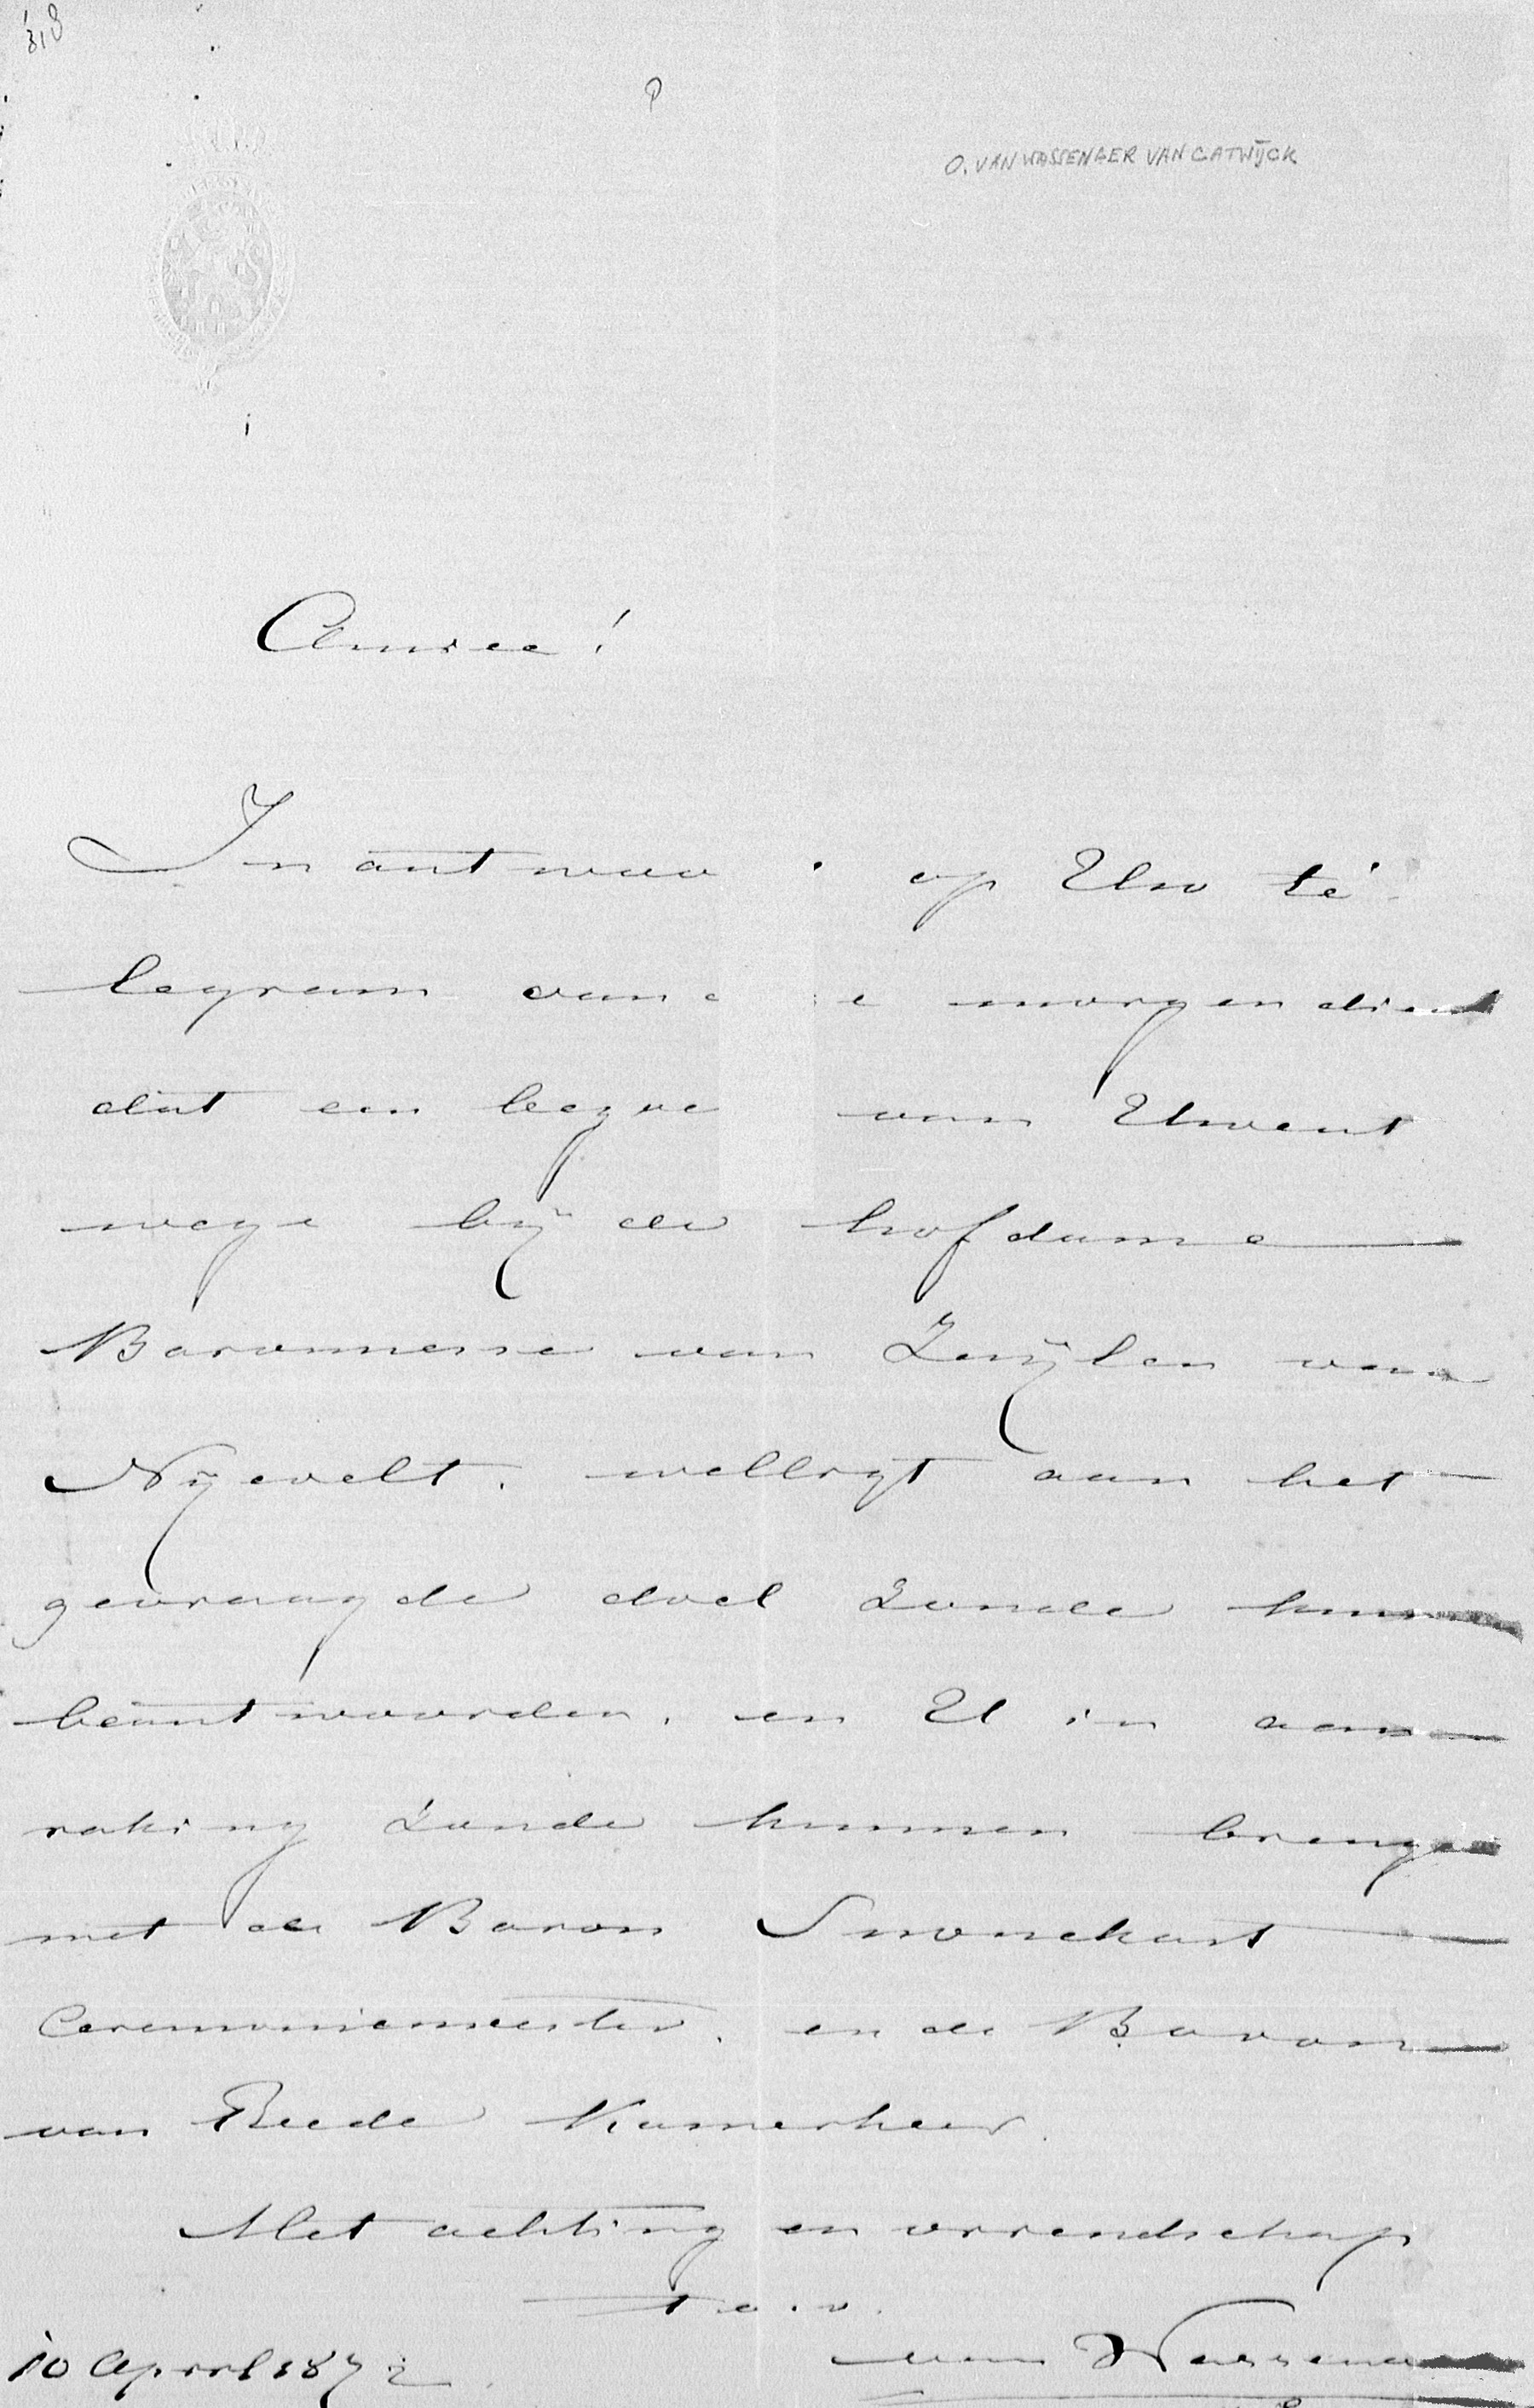 O. VAN WASSENAER VAN CATWIJCK
Amice!
In antwoo op Uw té
legram van e morgen dient
dat een van Uwent
wege bij de hofdame
Baronnesse van Zuijlen van
Nijevelt. welligt aan het
gevraagde doel zoude
beantwoorden, en U in aan
raking zoude kunnen brengen
met de Baron Smouckart
Ceremoniemeester, en de Baron
van Reede Kamerheer.
Met achting en vriendschap
t. a. v.
10 April 1872.
van Wassenaer